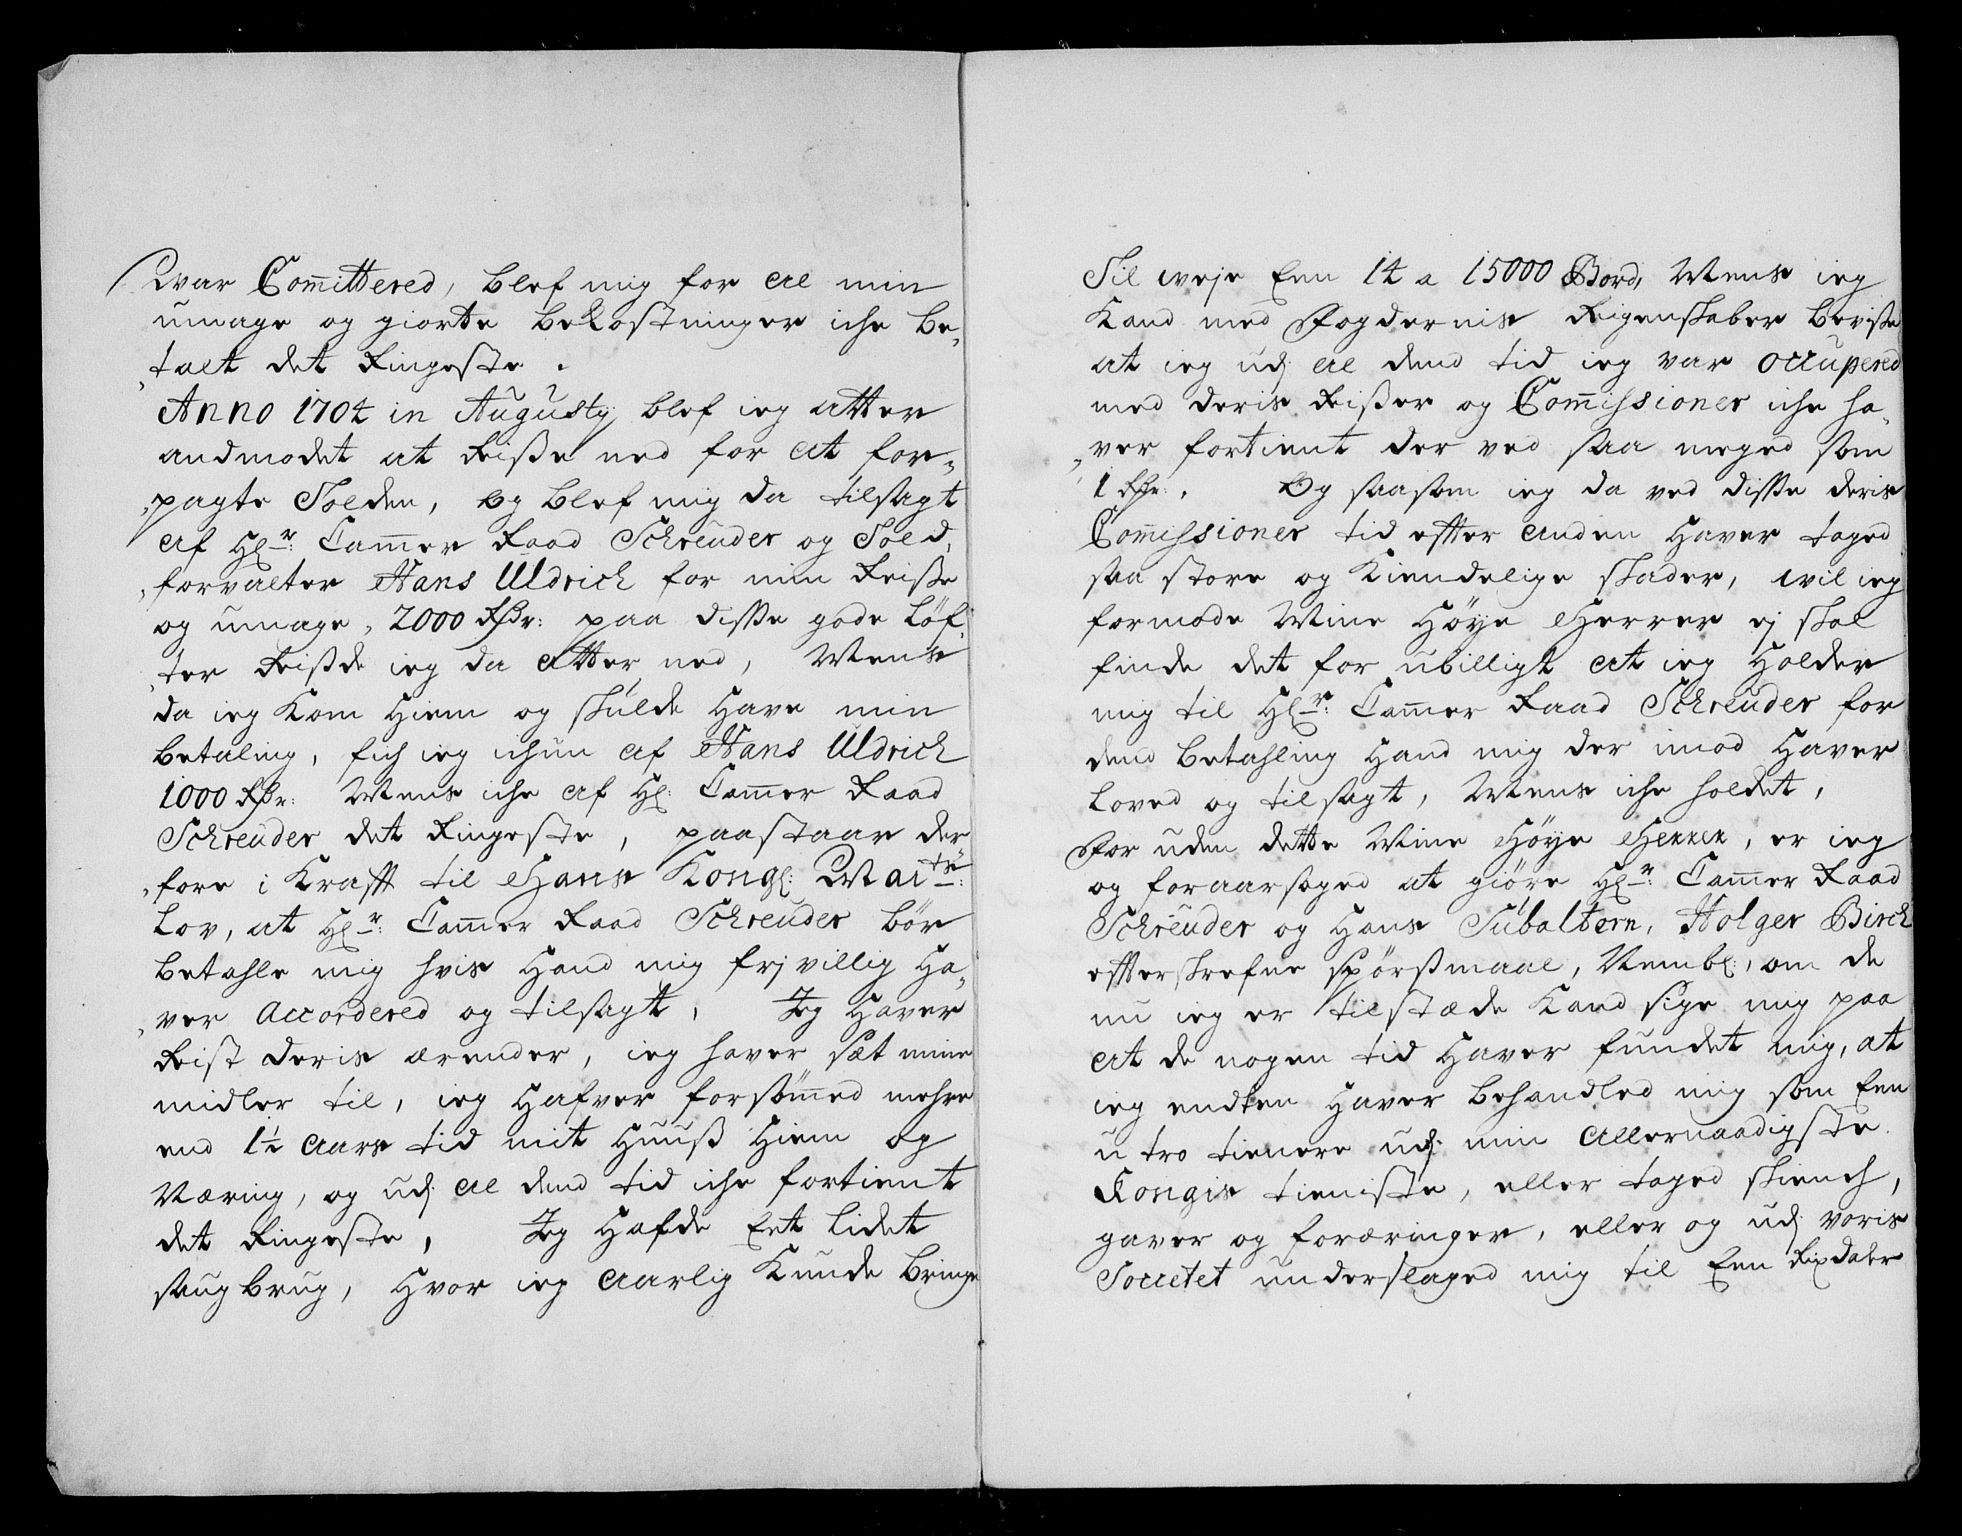 war Committered, blef mig for al min
umage og giorte bekostninger iche be„
„talt det Ringeste.
Anno 1704 in Augusty blef ieg atter
andmodet at Reisse ned for at for„
„pagte Tolden, og blef mig da tilsagt
af Hl.r: Cammer Raad Schreuder og Told„
„forvalter Hans Uldrich for min Reisse
og umage, 2000 Rdr: paa disse gode Löf„
„ter Reisde ieg da atter ned, Mens
da ieg Kom Hiem og skulde Have min
betaling, fich ieg ichun af Hans Uldrich
1000 Rdr: Mens iche af Hl: Cammer Raad
Schreuder det Ringeste, paastaar der„
„fore i Krafft til Hans Kongl: Maits:
Lov, at Hl.r: Cammer Raad Schreuder bör
betahle mig hvis Hand mig frj villig Ha„
„ver Accordered og tilsagt, Jeg Haver
Reist deris ærender, ieg haver sæt mine
midler til, ieg Hafver forsömmed mehre
end 1½ Aars tid mit Huuss Hiem og
Næring, og udj al dend tid iche fortient
det Ringeste, Jeg Hafde Eet lidet
saugbrug, Hvor ieg Aarlig Kunde bringe
Til weje Een 14 a 15000 Bord, Mens ieg
Kand med Fogdernis Reigenskaber bevisse
at ieg udj al dend tid ieg var occupered
med deris Reisser og Commissioner iche ha„
„ver fortient der ved saa meged som
1 Rdr. Og saasom ieg da ved disse deris
Commissioner tid effter anden Haver taged
saa store og Kiendelige skader, wil ieg
formode Mine Höye Herrer ej skal
finde det for ubilligt at ieg Holder
mig til Hl.r: Cammer Raad Schreuder for
dend betahling Hand mig der imod Haver
Loved og tilsagt, Mens iche holdet,
For uden dette Mine Höye Herrer, er ieg
og foraarsaged at giöre Hl.r: Cammer Raad
Schreuder og Hans Subaltern, Holger Birch
effterskrefne spörssmaal, Nembl:, om de
nu ieg er tilstæde Kand sige mig paa
at de nogen tid Haver fundet mig, at
ieg endten Haver behandled mig som Een
u tro tienere udj min Allernaadigste
Kongis tieniste, eller taged skiench,
gaver og foræringer, eller og udj voris
Societet underslaged mig til Een Rixdaler